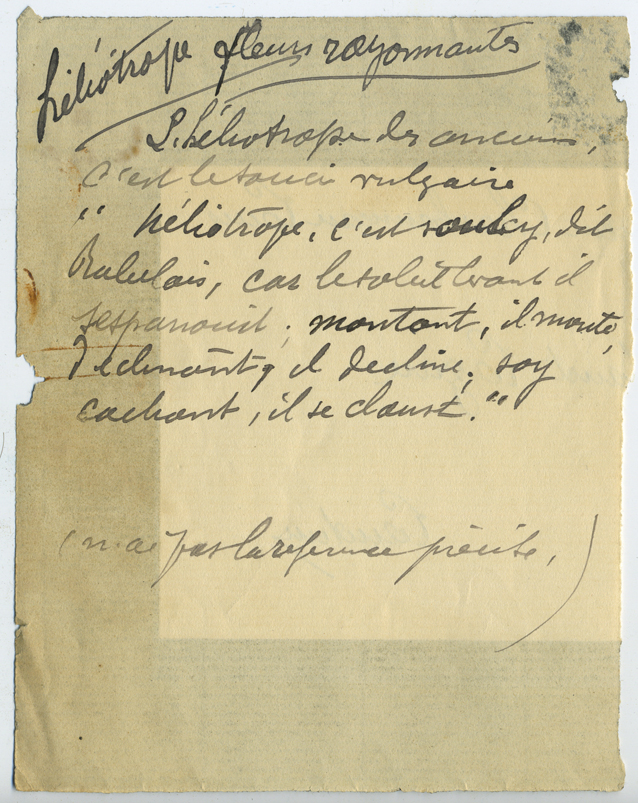 héliotrope fleurs rayonnantes
L'héliotrope des anciens,
c'est le souci vulgaire
" héliotrope, c'est soulcy, dit
Rabelais, car le soleil levant il
s'espanouit ; montant, il monte,
declinant, il decline, soy
cachant, il se cloust."
(n'ai pas la référence précise,)